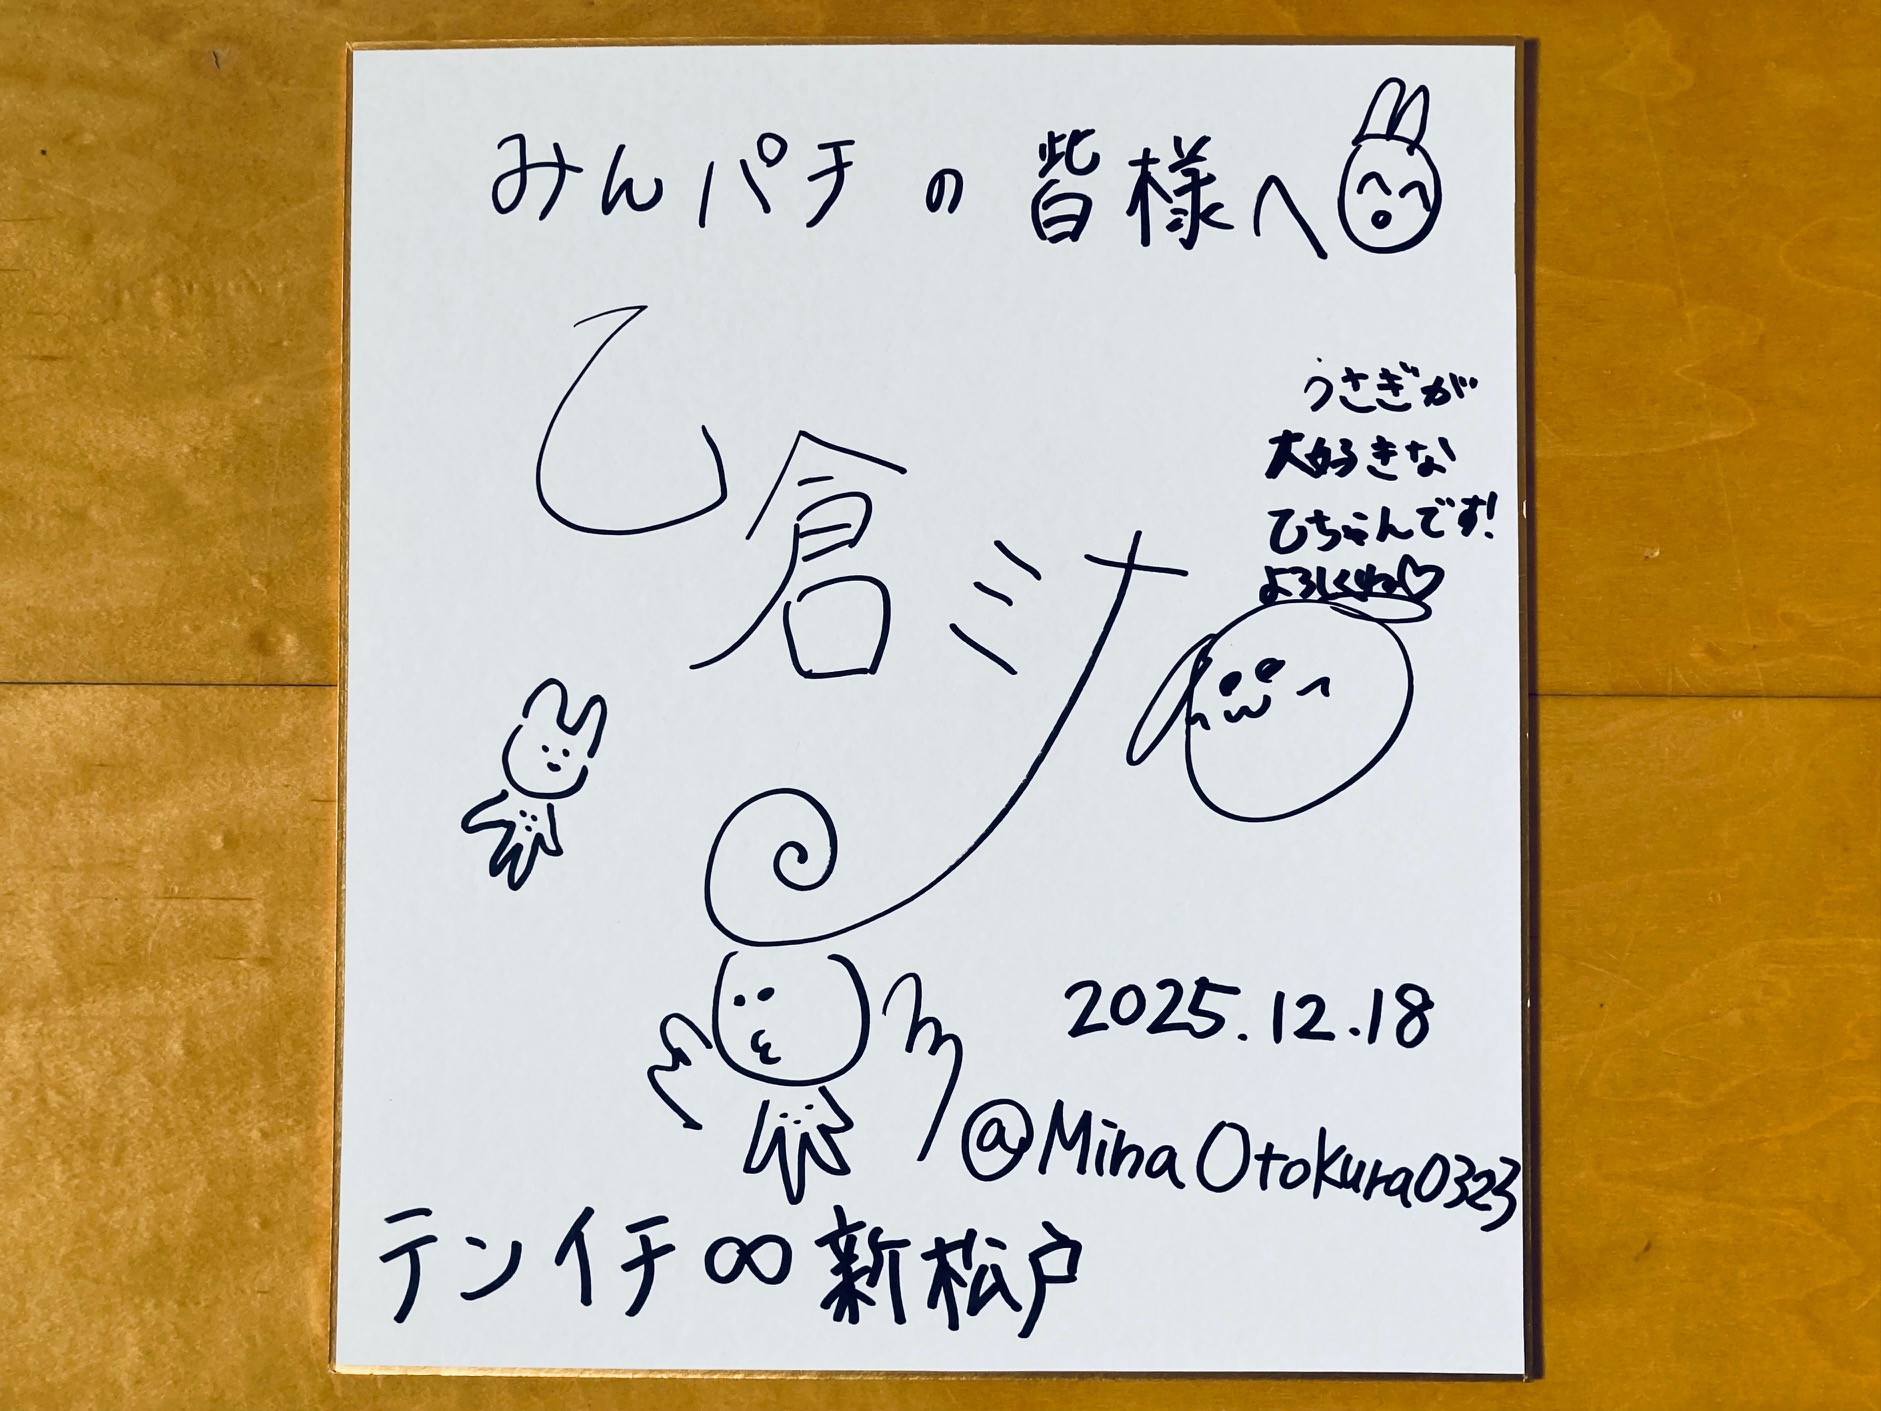 みんパチの皆様へ
乙倉ミナ
うさぎが
大好きな
ひちゃんです!
よろしくね♡
2025.12.18
@MinaOtokura0323
テンイチ∞新松戸